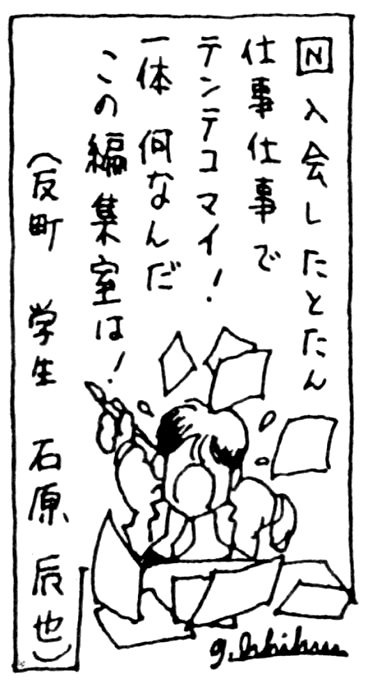 N 入会したとたん
仕事仕事で
テンテコマイ!
一体 何なんだ
この編集室は!
(反町 学生 石原 辰也)
g. Ishihara